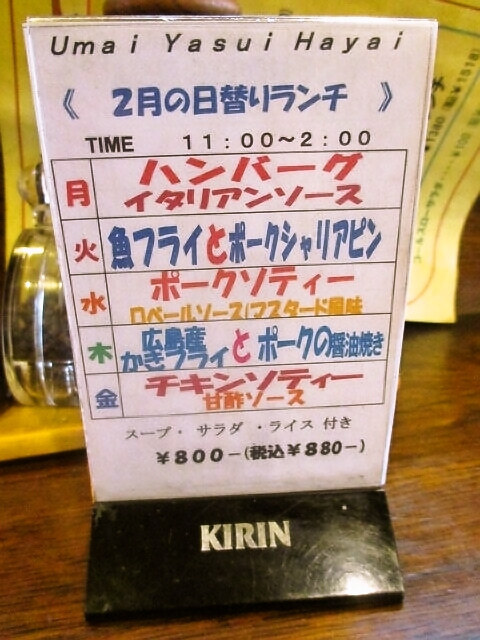 Umai Yasui Hayai
《 2月の日替りランチ 》
TIME 11:00～2:00
月 ハンバーグ
イタリアンソース
火 魚フライとポークシャリアピン
水 ポークソティー
ロベールソース(フスタード風味
木 広島産
かきフライ と ポークの醤油焼き
金 チキンソティー
甘酢ソース
スープ・サラダ・ライス付き
￥800-(税込￥880-)
KIRIN